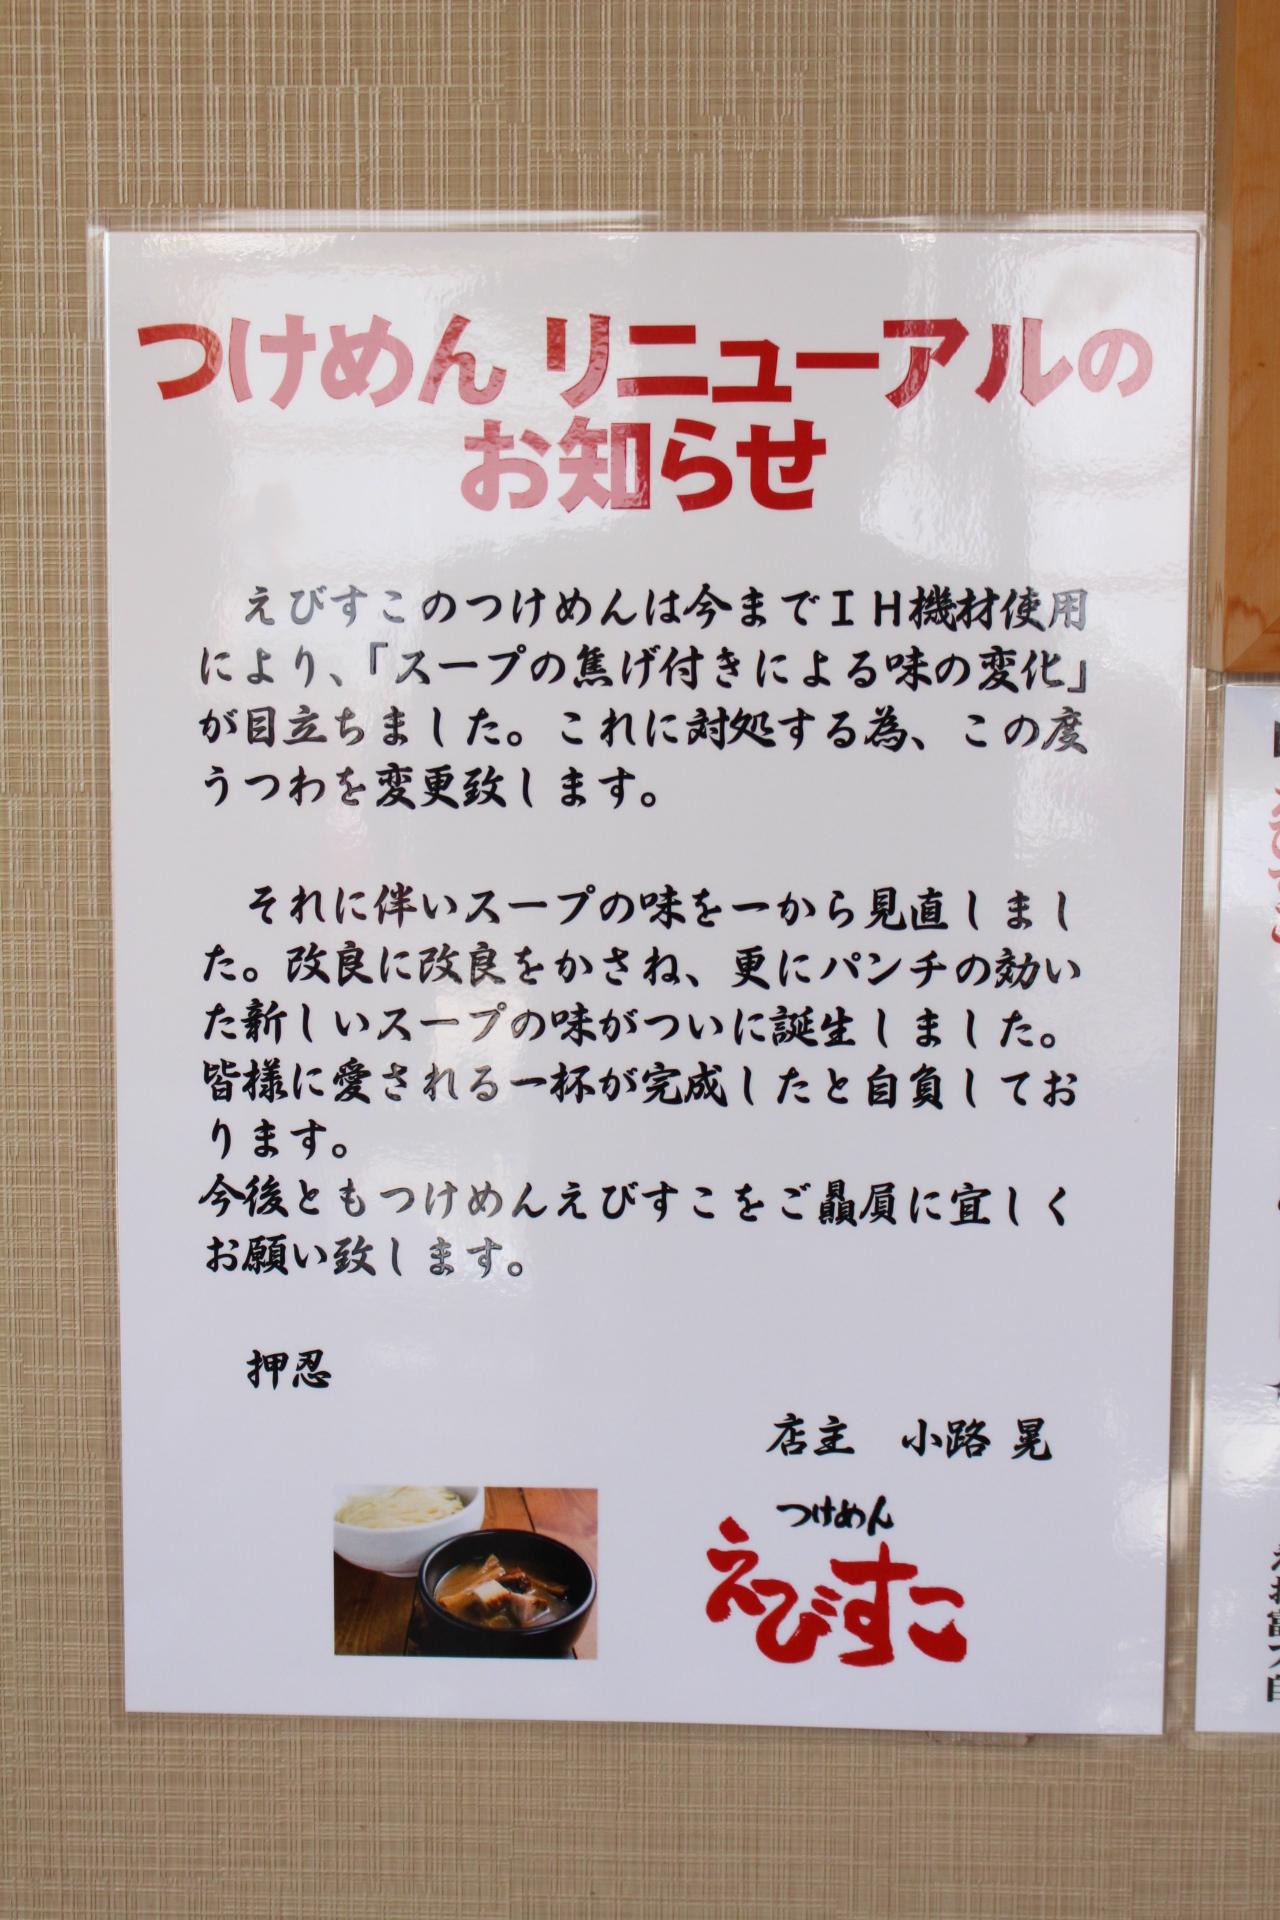 つけめん リニューアルの
お知らせ
えびすこのつけめんは今までＩＨ機材使用
により、「スープの焦げ付きによる味の変化」
が目立ちました。これに対処する為、この度
うつわを変更致します。
それに伴いスープの味を一から見直しまし
た。改良に改良をかさね、更にパンチの効い
た新しいスープの味がついに誕生しました。
皆様に愛される一杯が完成したと自負してお
ります。
今後ともつけめんえびすこをご贔屓に宜しく
お願い致します。
押忍
店主　小路 晃
つけめん
えびすこ